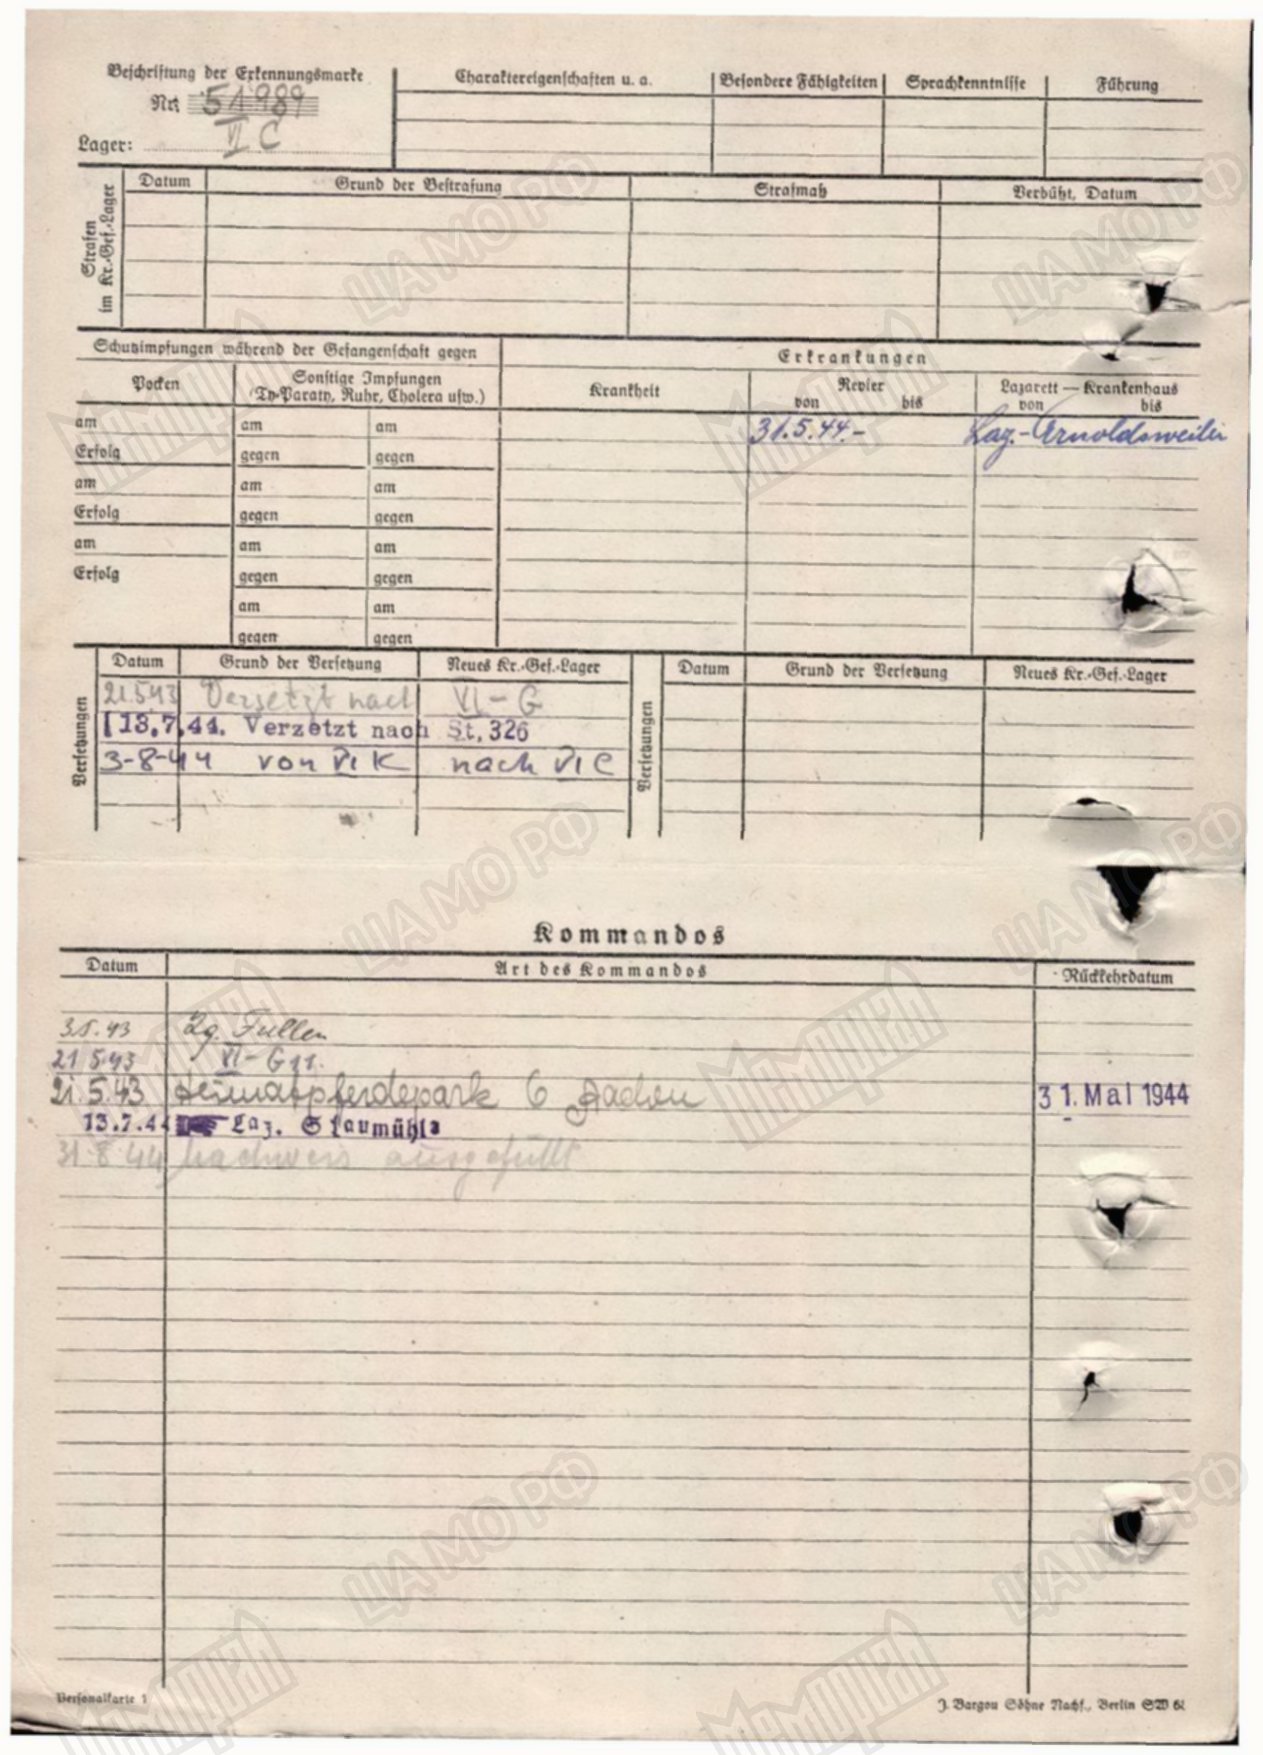 Beschriftung der Erkennungsmarke
Nr. 51989
Lager: VI C
Charaktereigenschaften u. a.
Besondere Fähigkeiten
Sprachkenntnisse
Führung
Strafen im Kr.-Gef.-Lager
Datum
Grund der Bestrafung
Strafmaß
Verbüßt, Datum
Schutzimpfungen während der Gefangenschaft gegen
Erkrankungen
Pocken
Sonstige Impfungen
(Ty-Paraty, Ruhr, Cholera usw.)
Krankheit
Revier
von bis
Lazarett — Krankenhaus
von bis
am am am
31.5.44.- Laz.-Arnoldsweiler
Erfolg gegen gegen
am am am
Erfolg gegen gegen
am am am
Erfolg gegen gegen
am am
gegen gegen
Versetzungen
Datum Grund der Versetzung Neues Kr.-Gef.-Lager
21.5.43 Versetzt nach VI-G
13.7.44. Verzetzt nach St. 326
3-8-44 von VI K nach VI C
Versetzungen
Datum Grund der Versetzung Neues Kr.-Gef.-Lager
Kommandos
Datum Art des Kommandos Rückkehrdatum
3.5.43 Lg. Fullen
21.5.43 VI-G
21.5.43 Heimatpferdepark 6 Aachen 31. Mai 1944
13.7.44 Laz. Staumühle
31.8.44 Nachweis ausgefüllt
Personalkarte 1
J. Bargou Söhne Nachf., Berlin SW 61
ЦАМО РФ
Мемориал